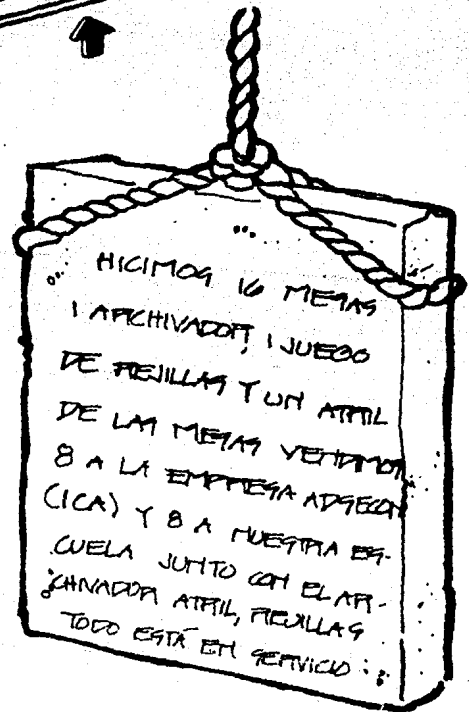 HICIMOS 16 MESAS
1 ARCHIVADOR, 1 JUEGO
DE REJILLAS Y UN ATRIL
DE LAS MESAS VENDIMOS
8 A LA EMPRESA ADSECON
(ICA) Y 8 A NUESTRA ES-
CUELA JUNTO CON EL AR-
CHIVADOR ATRIL, REJILLAS
TODO ESTÁ EN SERVICIO